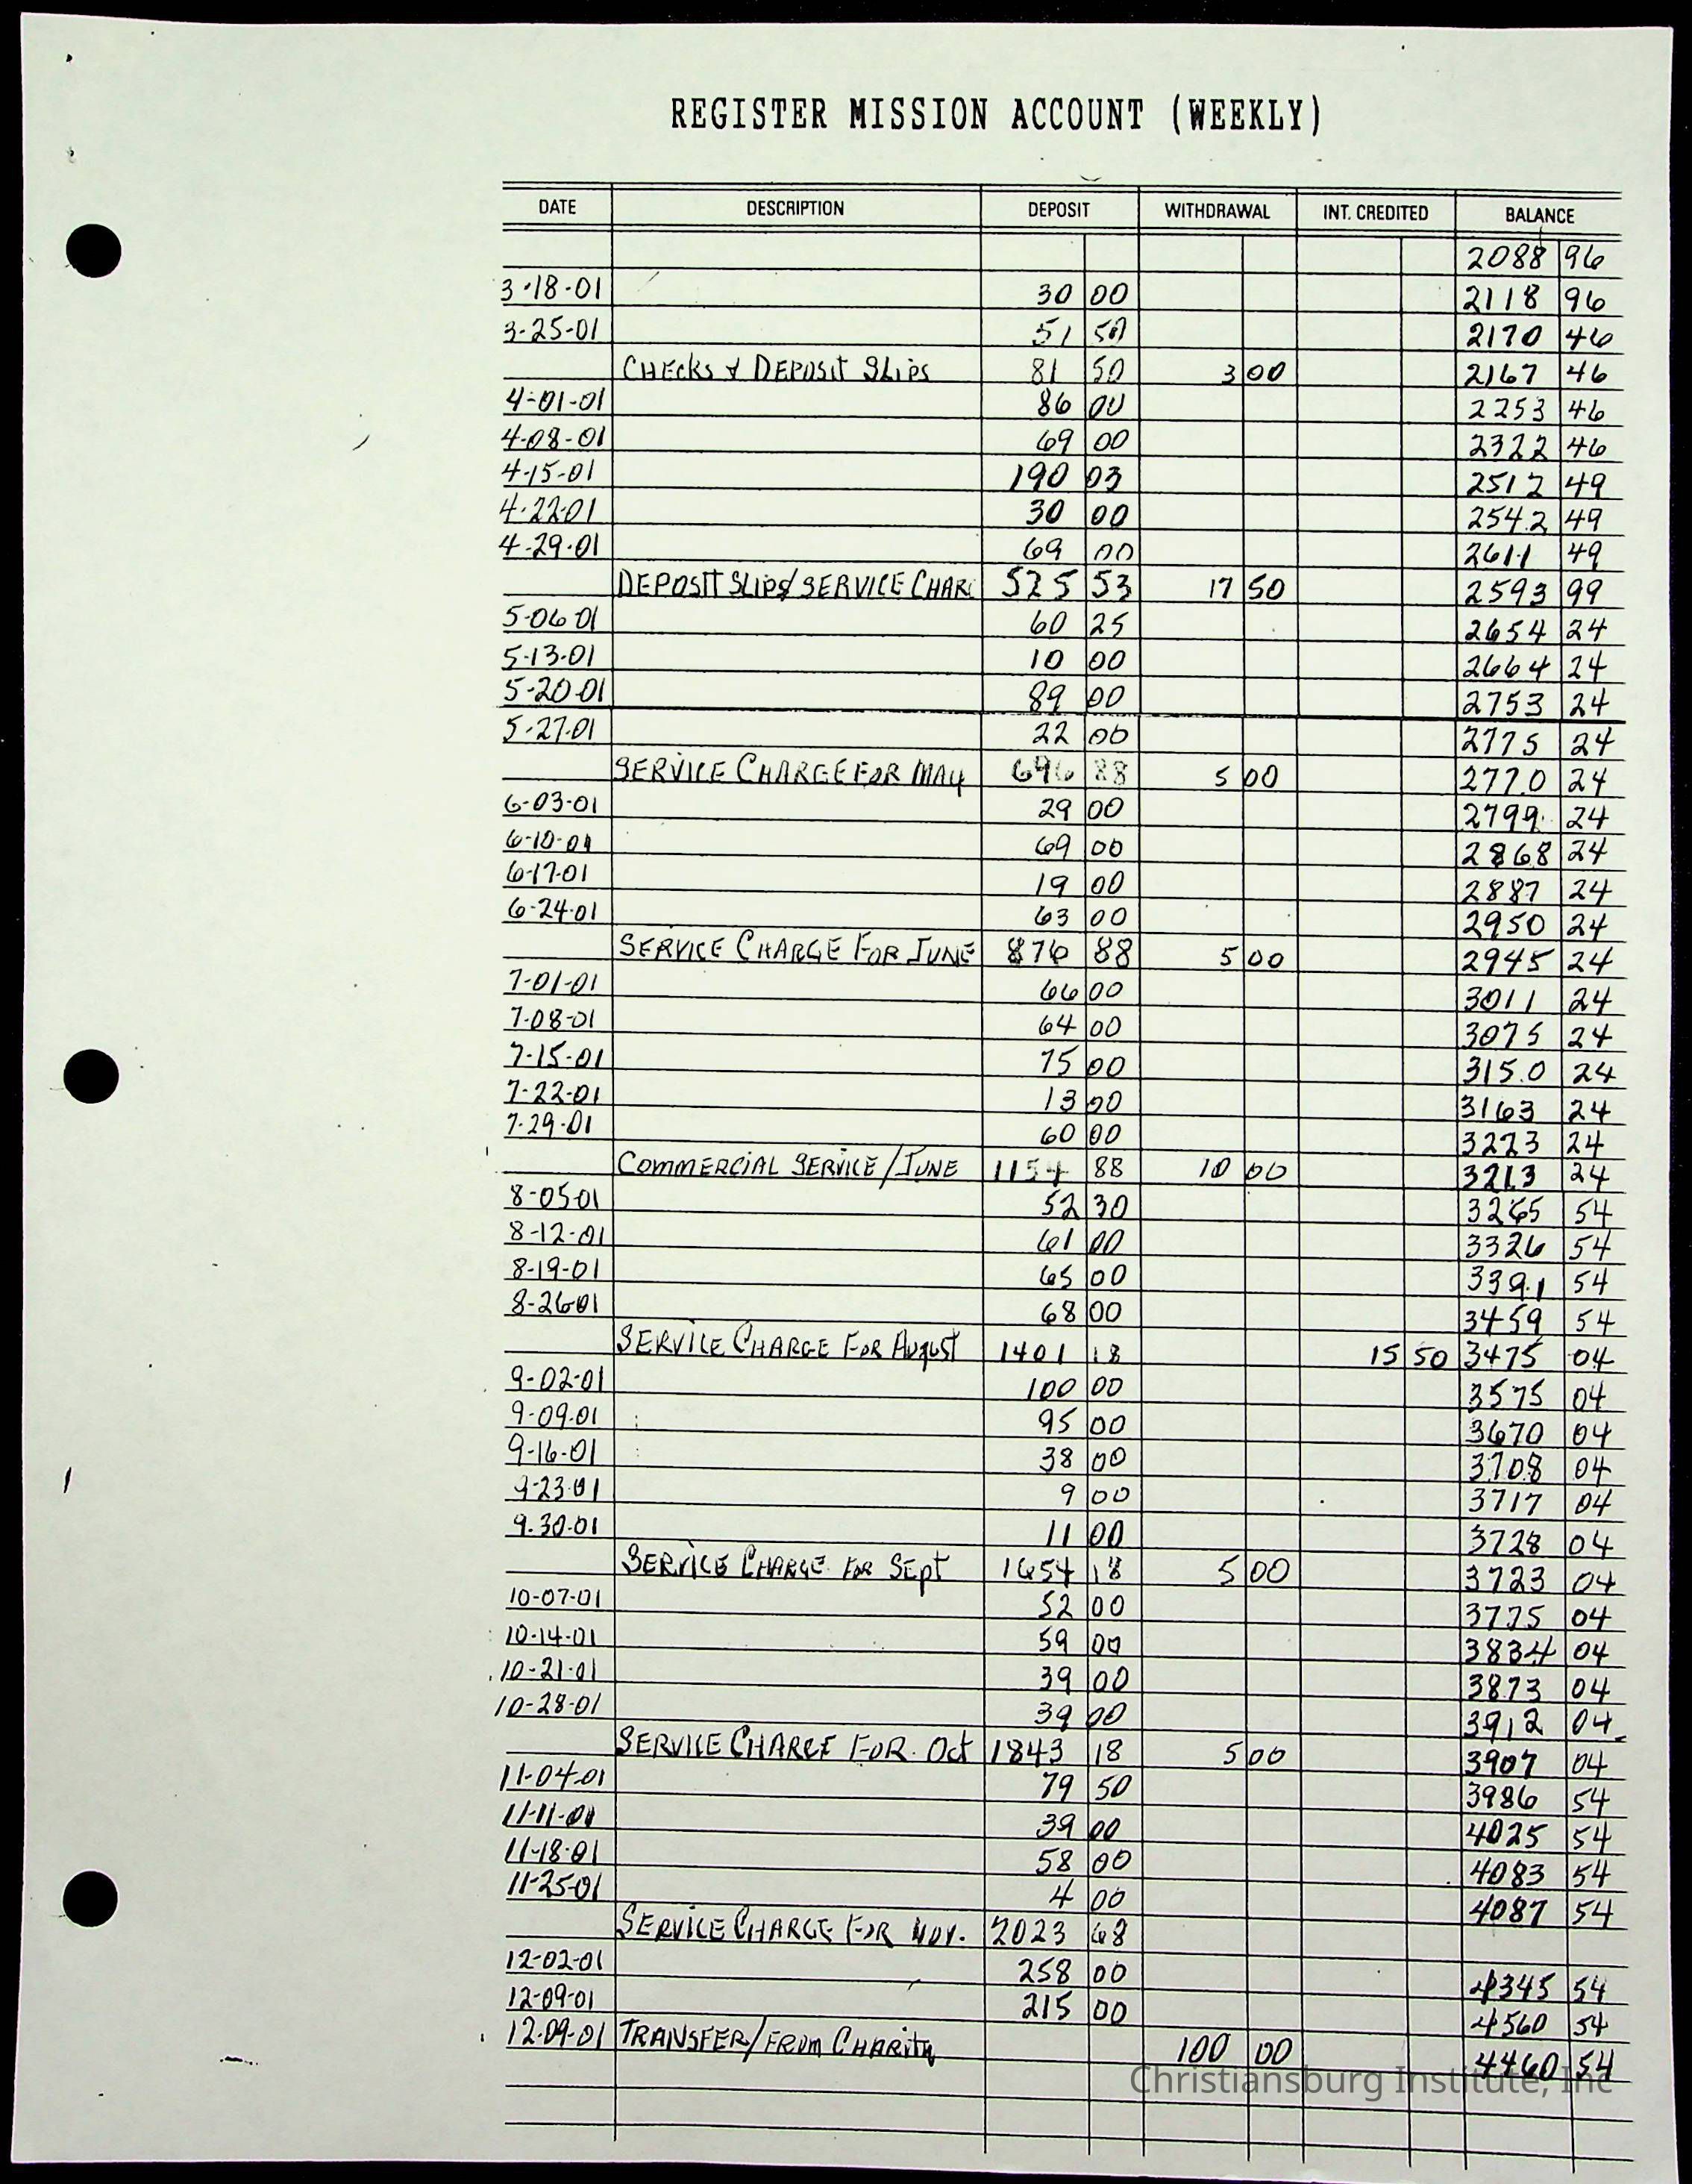 REGISTER MISSION ACCOUNT (WEEKLY)
DATE DESCRIPTION DEPOSIT WITHDRAWAL INT. CREDITED BALANCE
2088 96
3-18-01 30 00 2118 96
3-25-01 51 50 2170 46
CHECKS & DEPOSIT SLIPS 81 50 3 00 2167 46
4-01-01 86 00 2253 46
4-08-01 69 00 2322 46
4-15-01 190 03 2512 49
4-22-01 30 00 2542 49
4-29-01 69 00 2611 49
DEPOSIT SLIPS/SERVICE CHARG 525 53 17 50 2593 99
5-06-01 60 25 2654 24
5-13-01 10 00 2664 24
5-20-01 89 00 2753 24
5-27-01 22 00 2775 24
SERVICE CHARGE FOR MAY 696 88 5 00 2770 24
6-03-01 29 00 2799 24
6-10-01 69 00 2868 24
6-17-01 19 00 2887 24
6-24-01 63 00 2950 24
SERVICE CHARGE FOR JUNE 876 88 5 00 2945 24
7-01-01 66 00 3011 24
7-08-01 64 00 3075 24
7-15-01 75 00 3150 24
7-22-01 13 00 3163 24
7-29-01 60 00 3223 24
COMMERCIAL SERVICE/JUNE 1154 88 10 00 3213 24
8-05-01 52 30 3265 54
8-12-01 61 00 3326 54
8-19-01 65 00 3391 54
8-26-01 68 00 3459 54
SERVICE CHARGE FOR August 1401 18 15 50 3475 04
9-02-01 100 00 3575 04
9-09-01 95 00 3670 04
9-16-01 38 00 3708 04
9-23-01 9 00 3717 04
9-30-01 11 00 3728 04
SERVICE CHARGE FOR SEpt 1654 18 5 00 3723 04
10-07-01 52 00 3775 04
10-14-01 59 00 3834 04
10-21-01 39 00 3873 04
10-28-01 39 00 3912 04
SERVICE CHARGE FOR Oct 1843 18 5 00 3907 04
11-04-01 79 50 3986 54
11-11-01 39 00 4025 54
11-18-01 58 00 4083 54
11-25-01 4 00 4087 54
SERVICE CHARGE FOR NOV. 2023 68
12-02-01 258 00 4345 54
12-09-01 215 00 4560 54
12-09-01 TRANSFER/FROM CHARITY 100 00 4460 54
Christiansburg Institute, Inc